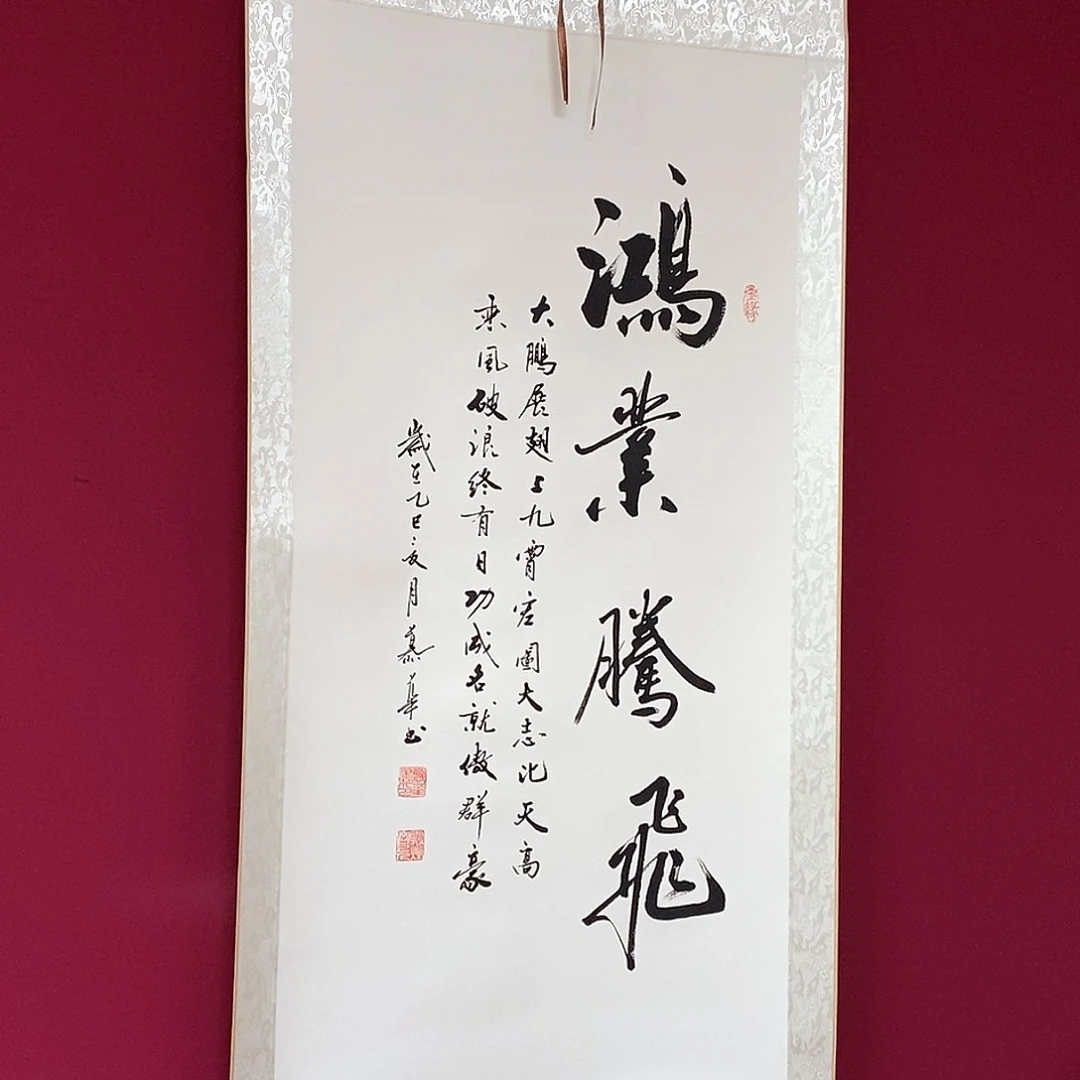 鴻業騰飛
大鵬展翅上九霄宏圖大志比天高
乘風破浪終有日功成名就傲群豪
歲在乙巳之夏月慕華書